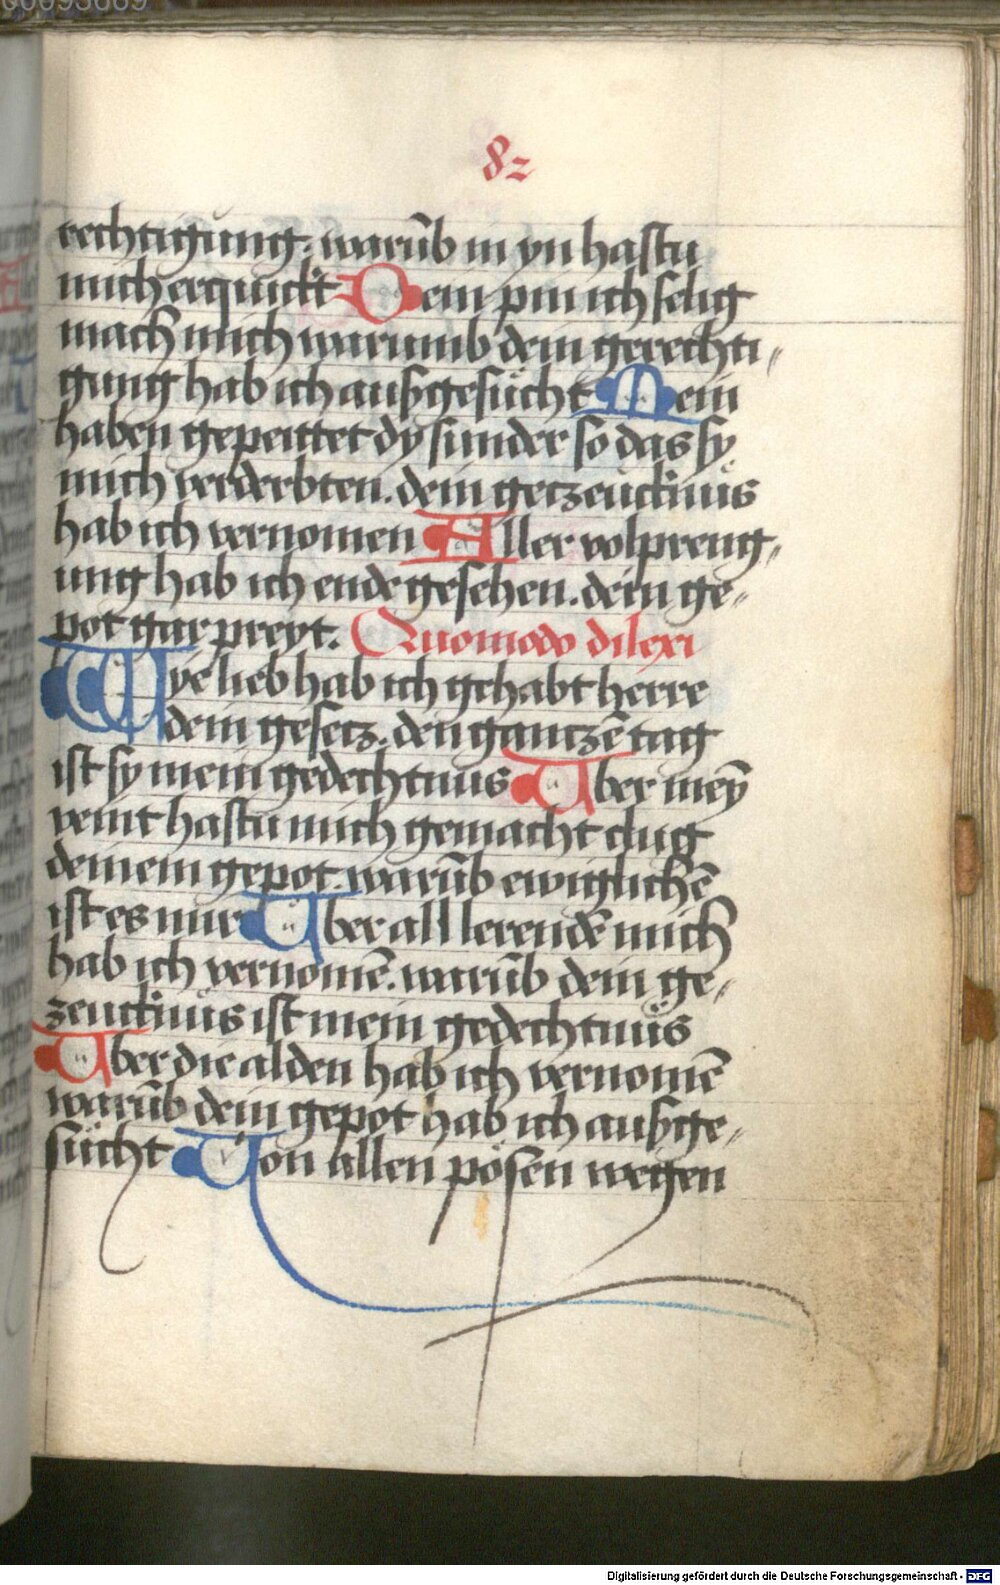 00093689
82
rechtigung. warūb in yn hastu
mich erquickt Dein pin ich selig
mach mich warumb dein gerechti„
gung hab ich außgesücht Mein
haben gepeittet dy sunder so das sy
mich verderbten. dein getzeucknüs
hab ich vernomen Aller volpreng„
ung hab ich ende gesehen. dein ge„
pot gar preyt. Quomodo dilexi
Wye lieb hab ich gehabt herre
dein gesetz. den gantzē tag
ist sy mein gedechtnus Uber meȳ
veint hastu mich gemacht clug
deinem gepot. warūb ewiglichē
ist es mir Uber all lerendē mich
hab ich vernomē. warūb dein ge„
zeucknüs ist mein gedechtnüs
Uber die alden hab ich vernomē
warūb dein gepot hab ich außge„
sücht Von allen pösen wegen
Digitalisierung gefördert durch die Deutsche Forschungsgemeinschaft - DFG